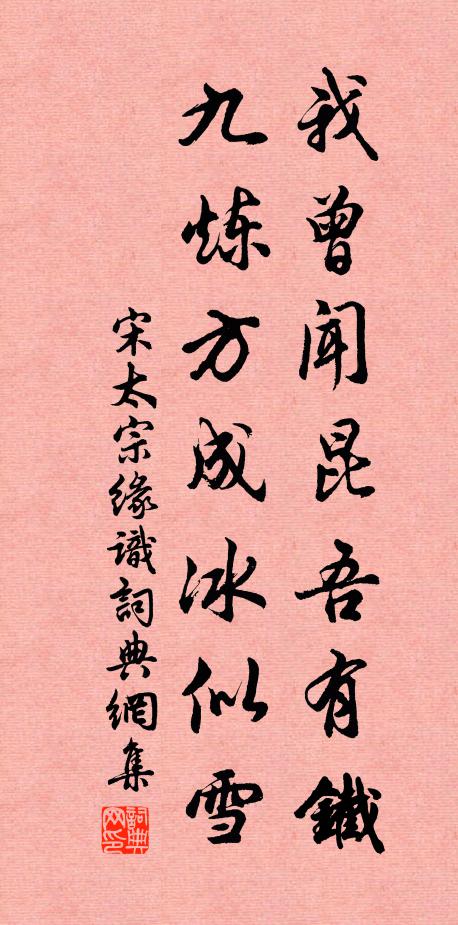 我曾闻昆吾有鐵
九炼方成冰似雪
宋太宗缘識詞典網集
詞典网印